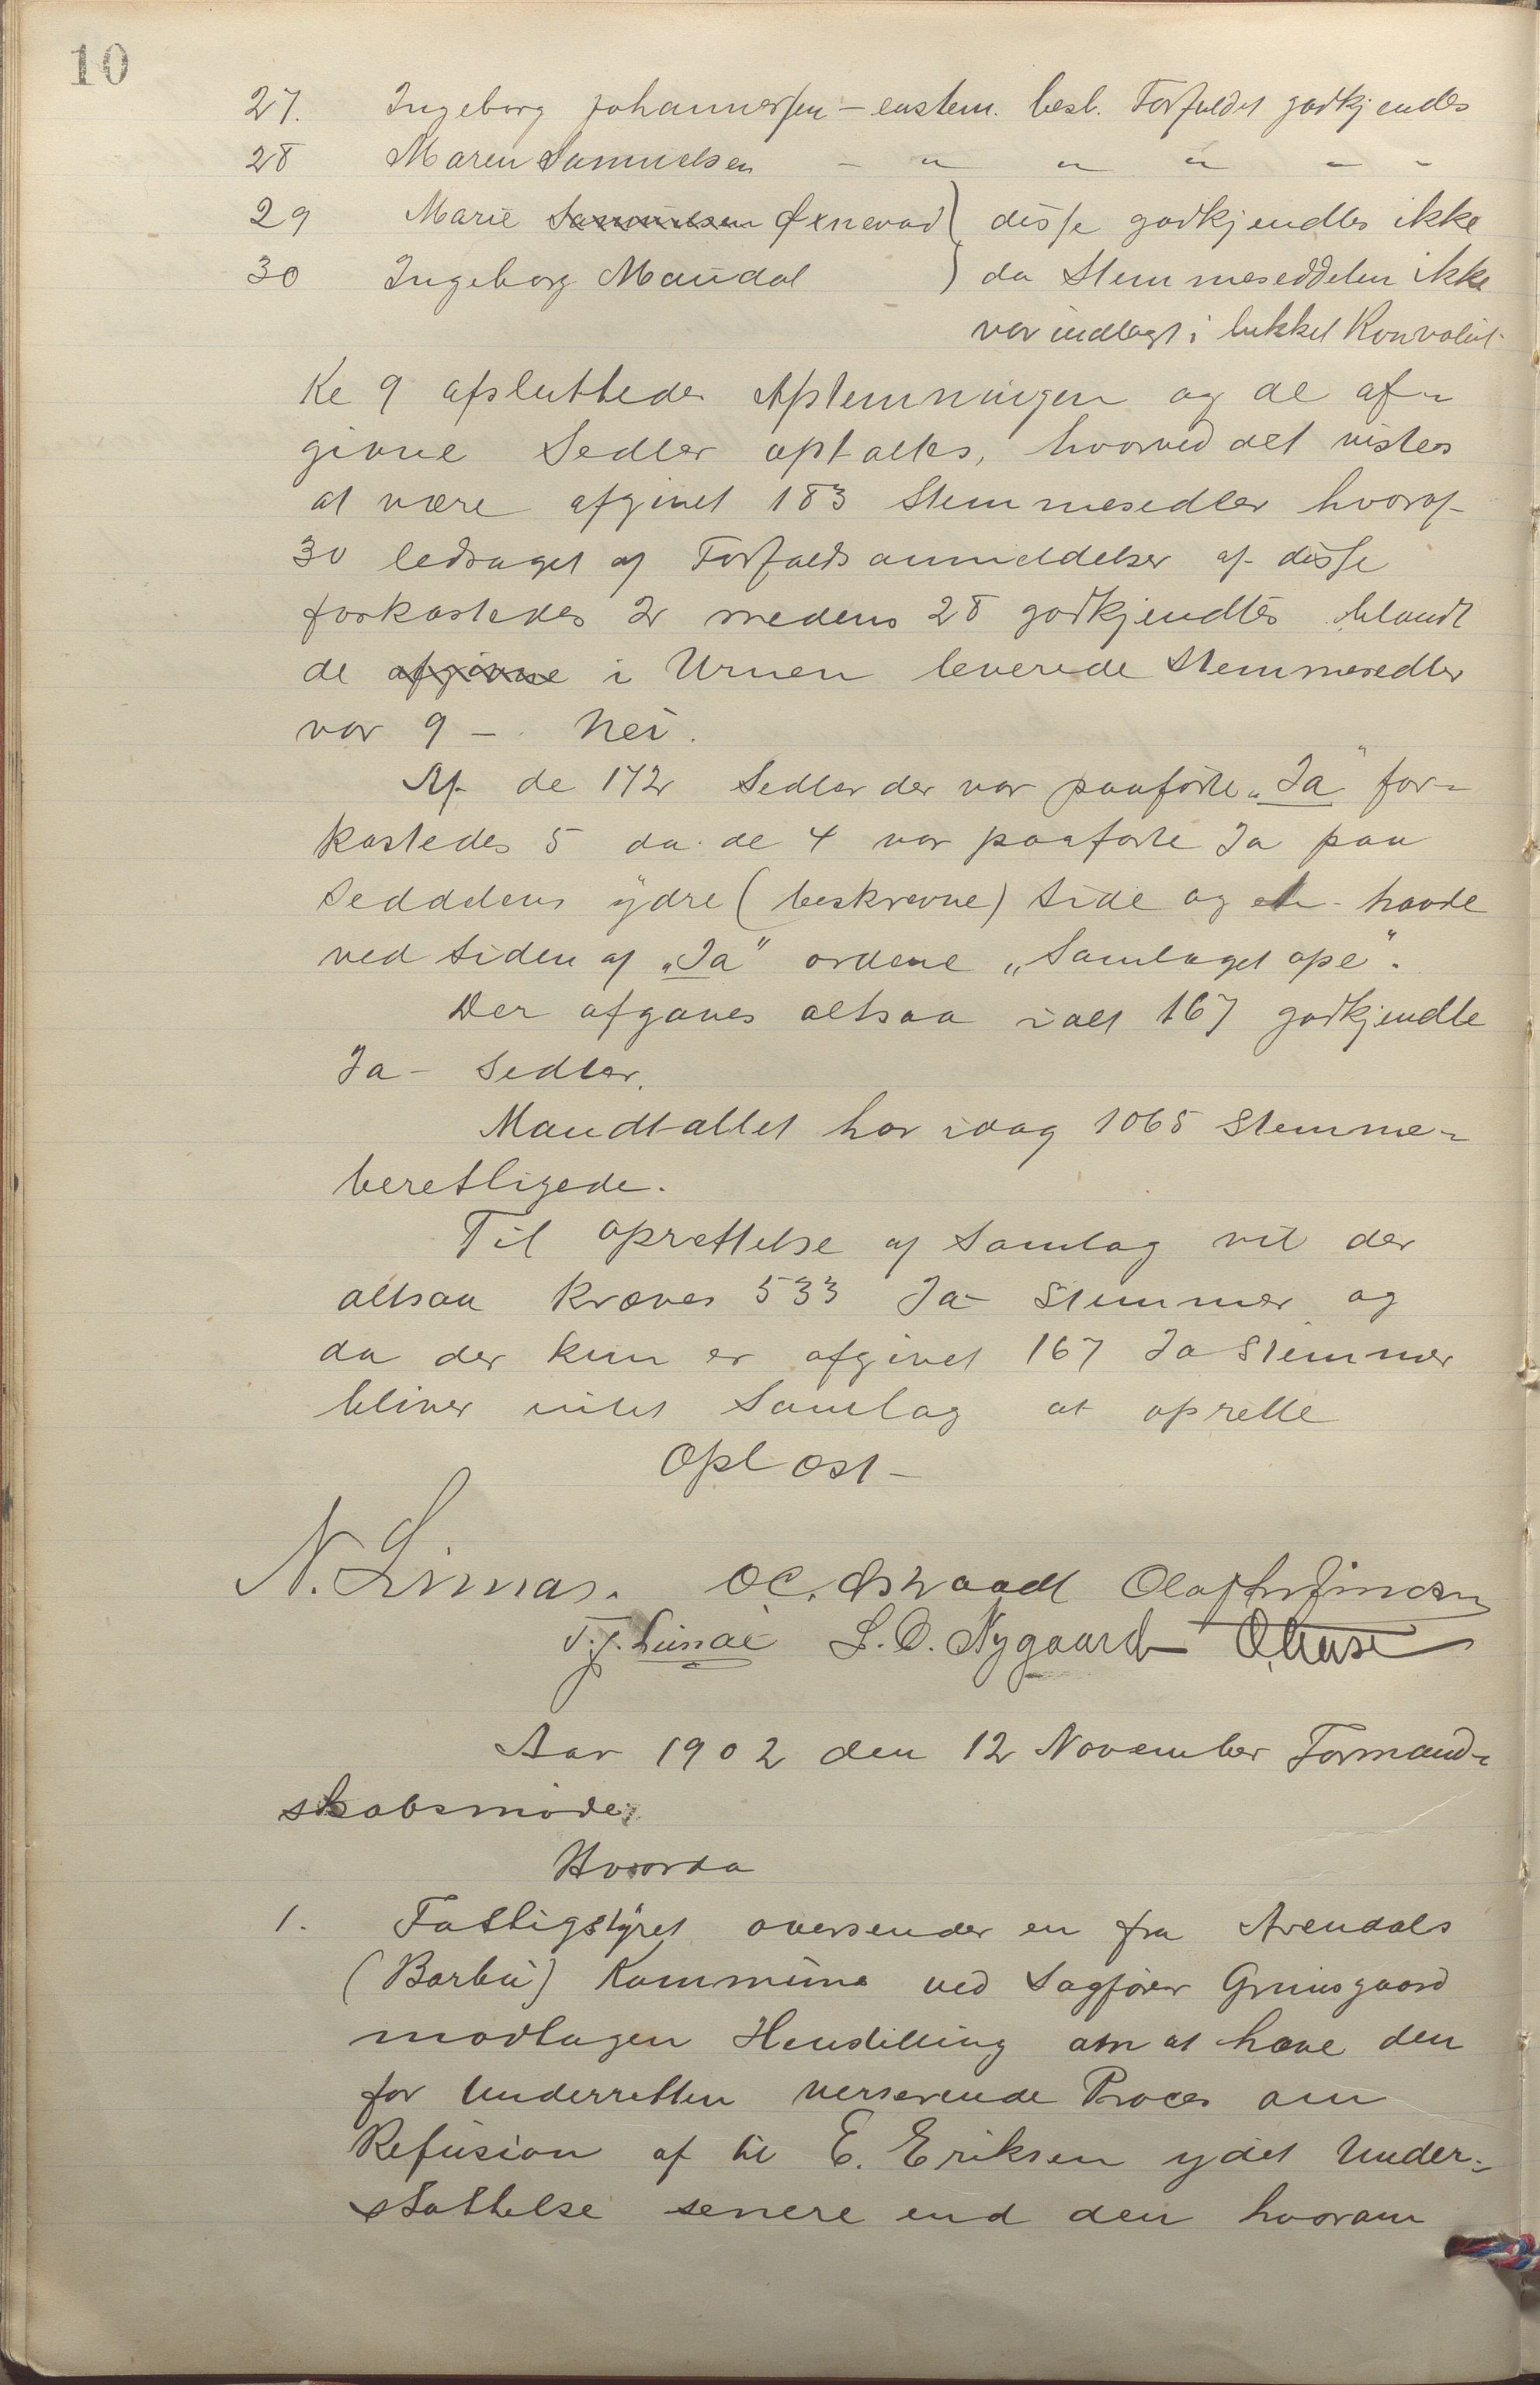 10
27. Ingeborg Johannessen - enstem. besl. Forfaldet godkjendes
28 Maren Samuelsen - " " " - -
29 Marie Samuelsen Øxnevad } disse godkjendtes ikke
30 Ingeborg Maudal } da Stemmeseddelen ikke
var indlagt i lukket Konvolut
Kl 9 afsluttedes Afstemningen og de af-
givne Sedler optaltes, hvorved det vistes
at være afgivet 183 Stemmesedler hvoraf
30 ledsaget af Forfaldsanmeldelser af disse
forkastedes 2 medens 28 godkjendtes blandt
de afgivne i Urnen leverede Stemmesedler
var 9 - Nei.
Af de 172 Sedler der var paaførte „Ja" for-
kastedes 5 da de 4 var paaførte Ja paa
Seddelens ydre (beskrevne) Side og en havde
ved siden af „Ja" ordene „Samlaget ope".
Der afgaves altsaa ialt 167 godkjendte
Ja - Sedler.
Mandtallet har idag 1065 Stemme-
berettigede.
Til oprettelse af Samlag vil der
altsaa kræves 533 Ja Stemmer og
da der kun er afgivet 167 Ja Stemmer
bliver intet Samlag at oprette
Oplæst -
N. Limas. O C. Olaf
L. O. Nygaard
Aar 1902 den 12 November Formand-
skabsmøde,
Hvorda
1. Fattigstyret oversender en fra Arendals
(Barbu) Kommune ved Sagfører Grimsgaard
modtagen Henstilling om at hæve den
for Underretten verserende Proces om
Refusion af til E. Eriksen ydet Under-
støttelse senere end den hvorom